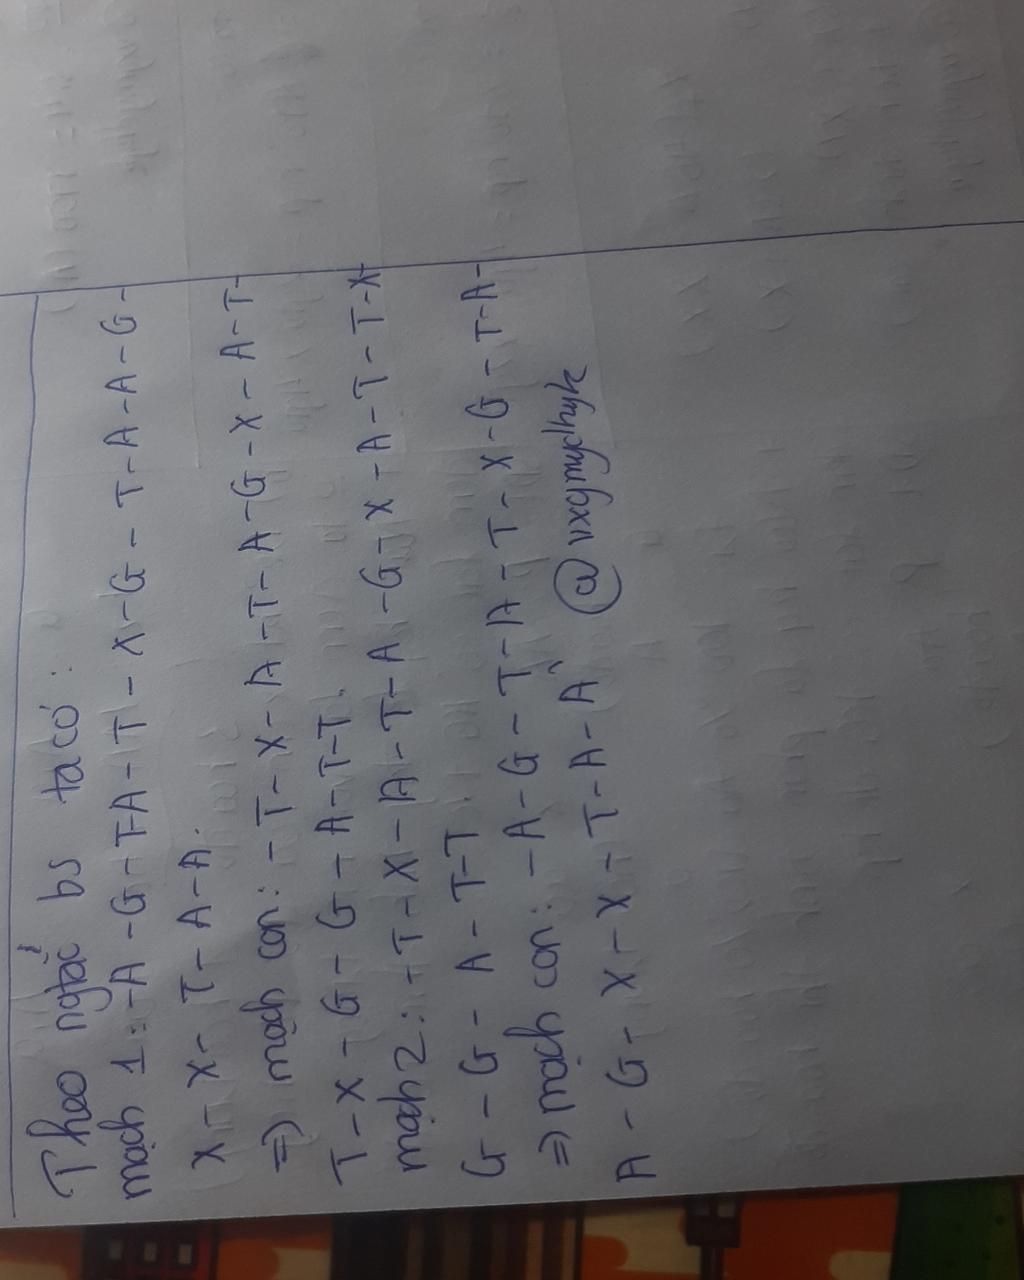 Theo ngtắc bs ta có:
mạch 1: -A-G-T-A-T-X-G-T-A-A-G-
X-X-T-A-A.
=) mạch con: -T-X-A-T-A-G-X-A-T-
T-X-G-G-A-T-T.
mạch 2: -T-X-A-T-A-G-X-A-T-T-X-
G-G-A-T-T.
=> mạch con: -A-G-T-A-T-X-G-T-A-
A-G-X-X-T-A-A